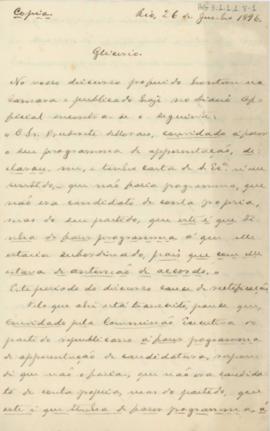 Copia
Rio, 26 de Junho 1896.
Glicerio.
No vosso discurso proferido hontem na
camara e publicado hoje no Diario Of-
ficial encontra-se o seguinte:
"O Sr. Prudente de Moraes, convidado a fazer
o seu programma de apresentação, de-
clarou-me, e tenho carta de S. Exª n'esse
sentido, que não faria programma, que
não era candidato de conta propria,
mas do seu partido, que este é que ti-
nha de fazer programma á que elle
estaria subordinado, pois que com elle
estava de antemão de accordo."
Este periodo do discurso carece de rectificação
Pelo que ahi está transcripto, parece que,
convidado pela Commissão Executiva do
partido republicano a fazer programma
de apresentação de candidatura, respon-
di que não o faria, que não era candida-
to de conta propria, mas do partido, que
este é que tinha de fazer programma, á